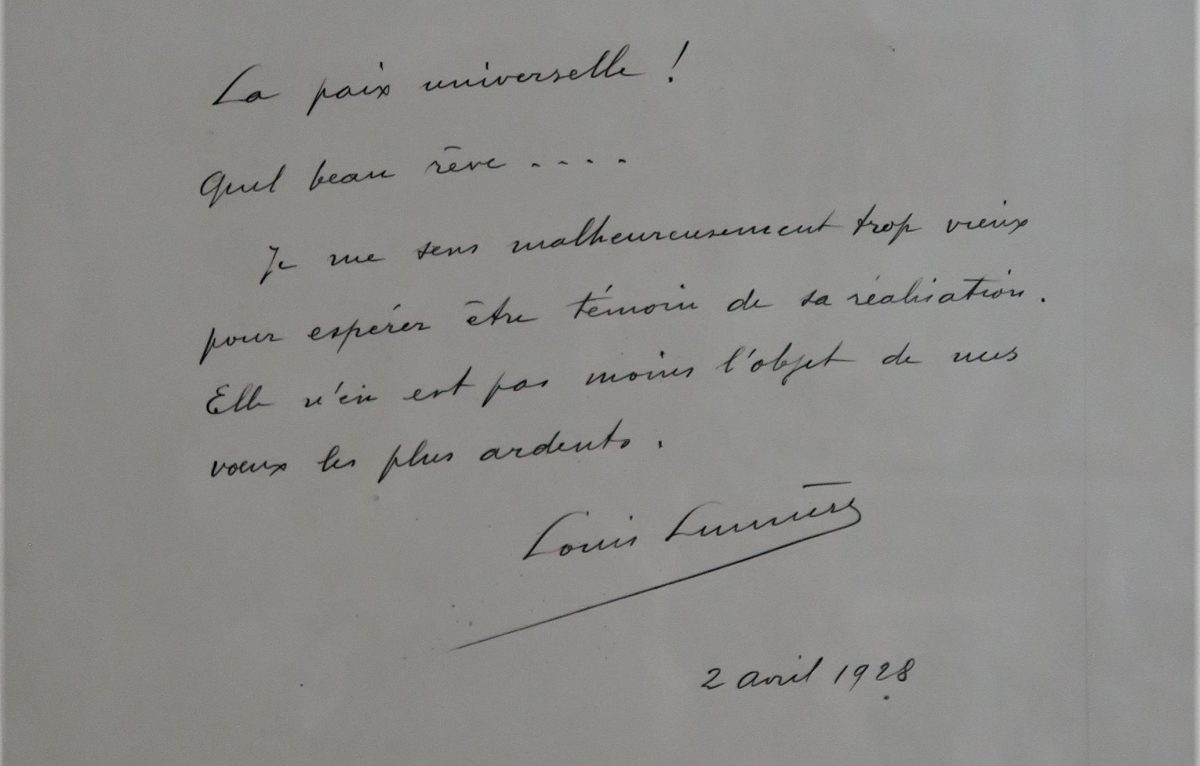 La paix universelle !
Quel beau rêve ....
Je me sens malheureusement trop vieux
pour espérer être témoin de sa réalisation.
Elle n'en est pas moins l'objet de mes
vœux les plus ardents.
Louis Lumière
2 avril 1928